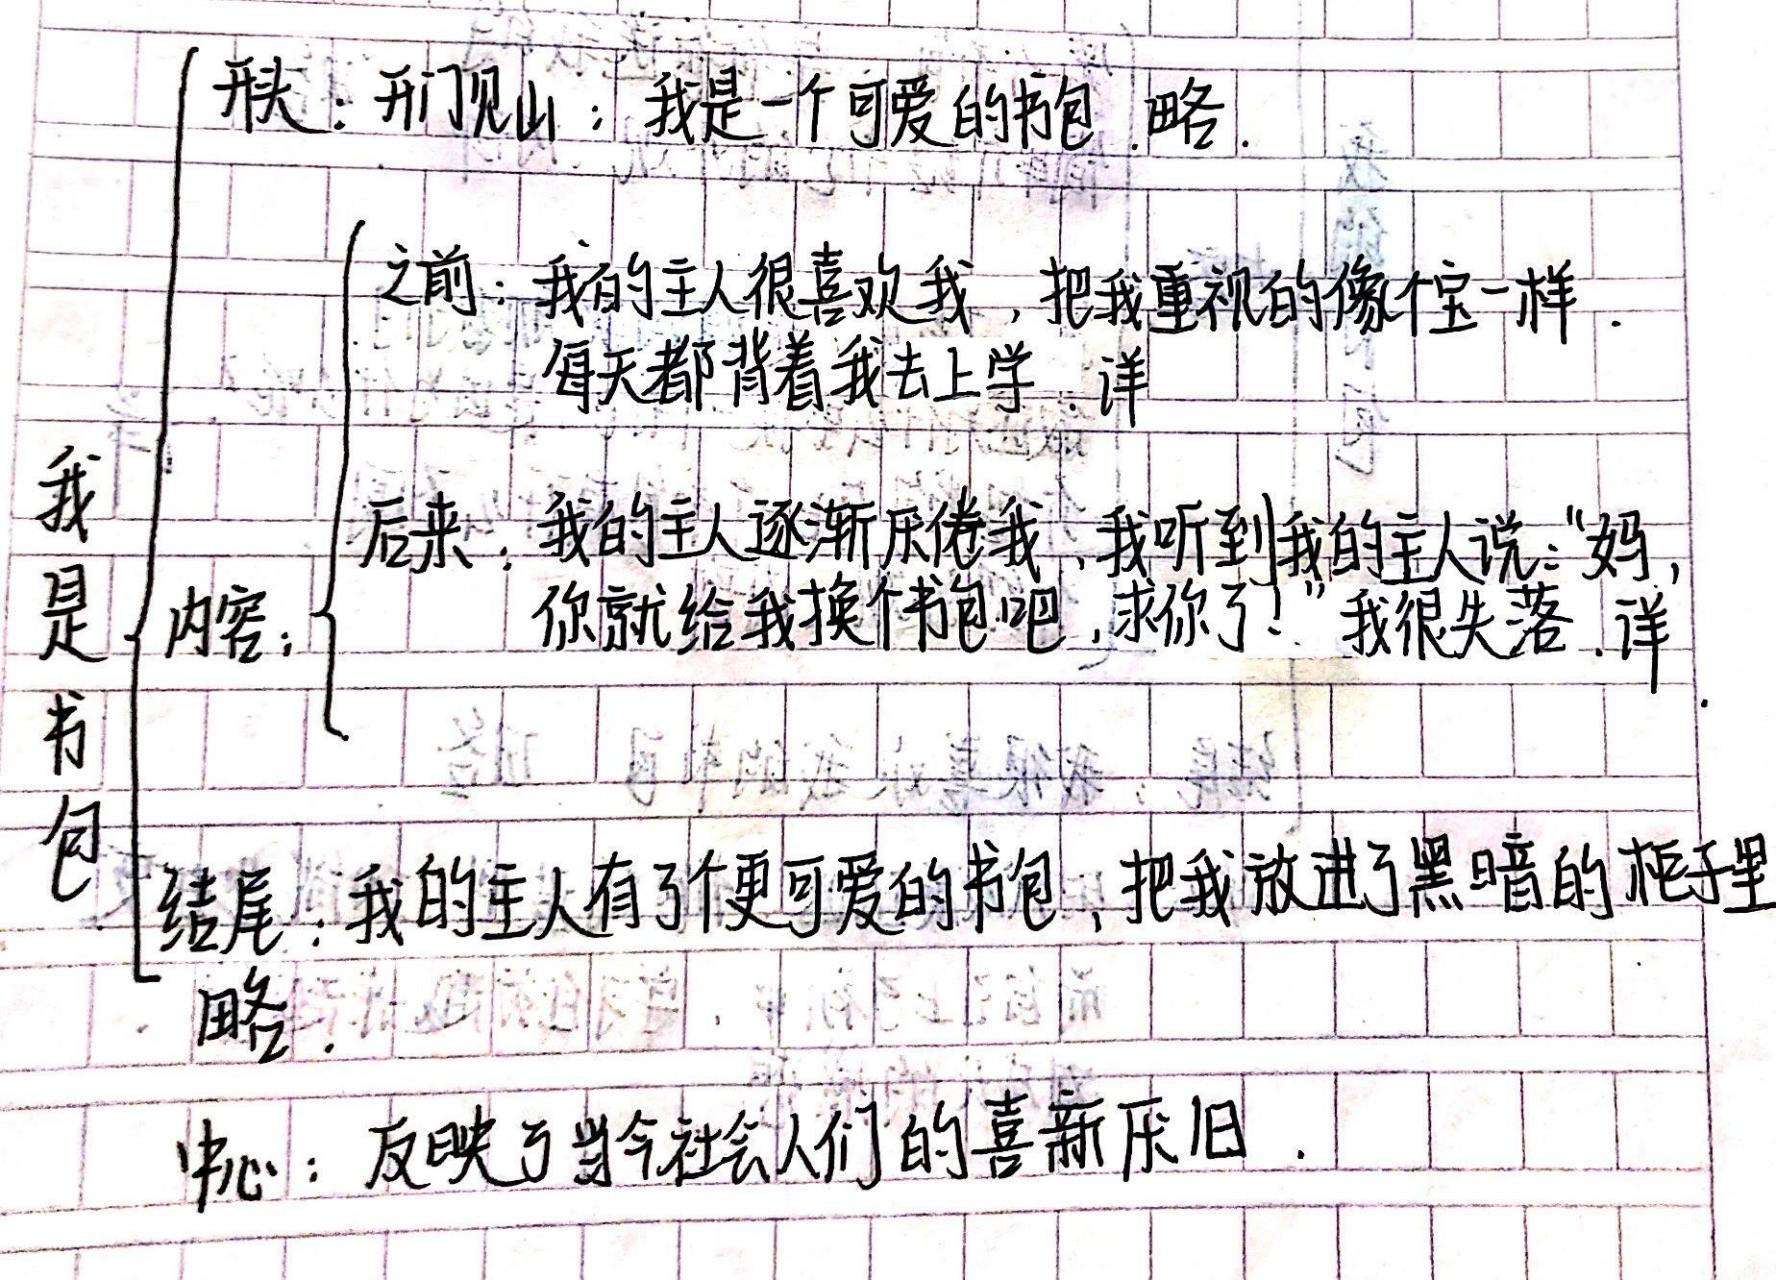 我是书包
开头：开门见山：我是一个可爱的书包．略．
内容：
之前：我的主人很喜欢我，把我重视的像个宝一样．
每天都背着我去上学．详
后来：我的主人逐渐厌倦我，我听到我的主人说：“妈，
你就给我换个书包吧，求你了！”我很失落．详．
结尾：我的主人有了个更可爱的书包，把我放进了黑暗的柜子里
略．
中心：反映了当今社会人们的喜新厌旧．